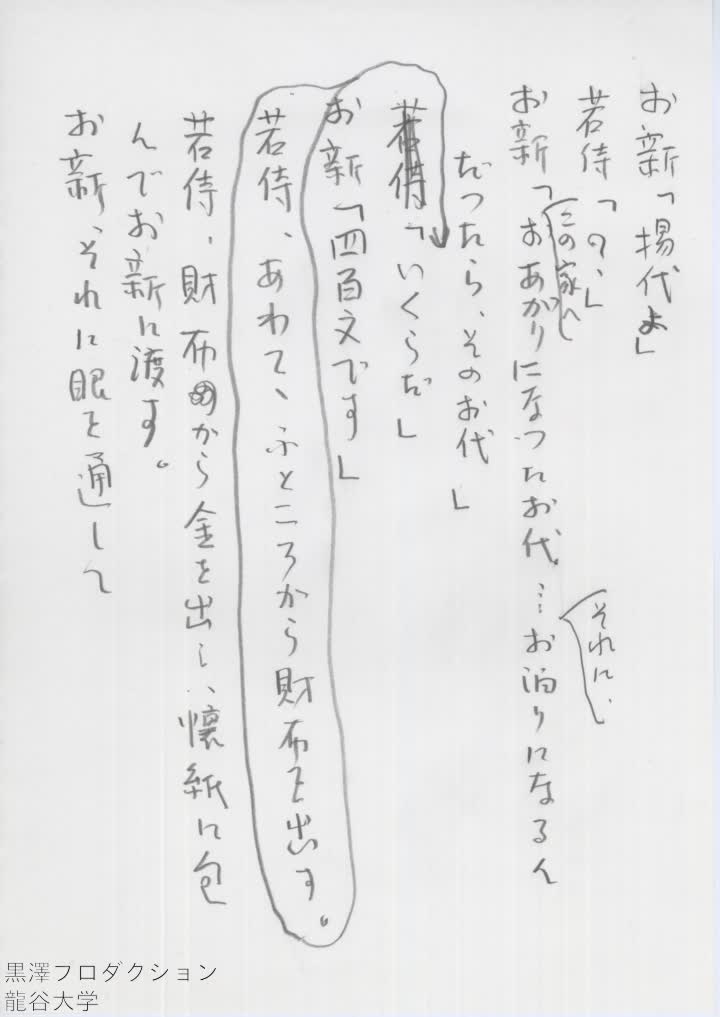 お新「揚代よ」
若侍「の、」
この家へ
お新「おあがりになつたお代…お泊りになるん
それに、
だつたら、そのお代」
若侍「いくらだ」
お新「四百文です」
若侍、あわてゝふところから財布を出す。
若侍、財布から金を出し、懐紙に包
んでお新に渡す。
お新、それに眼を通して
黒澤プロダクション
龍谷大学